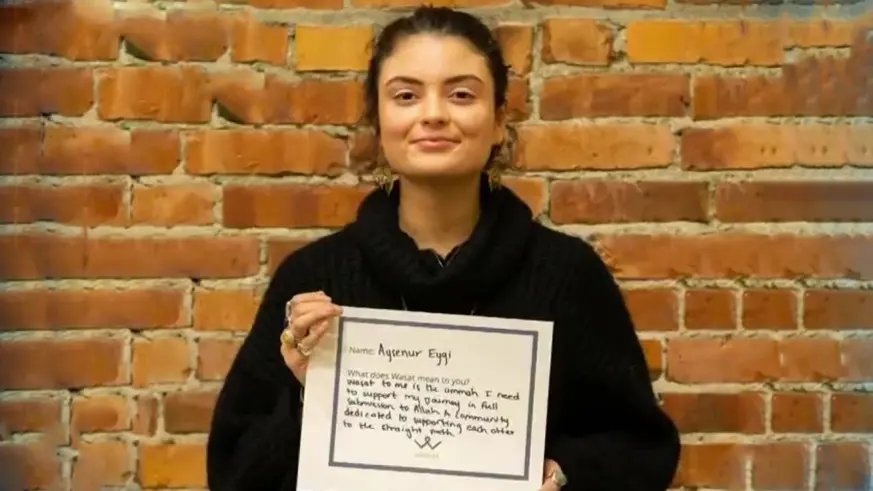 Name: Aysenur Eygi
What does Wasat mean to you?
Wasat to me is the ummah I need
to support my journey in full
submission to Allah. A community
dedicated to supporting each other
to the straight path.